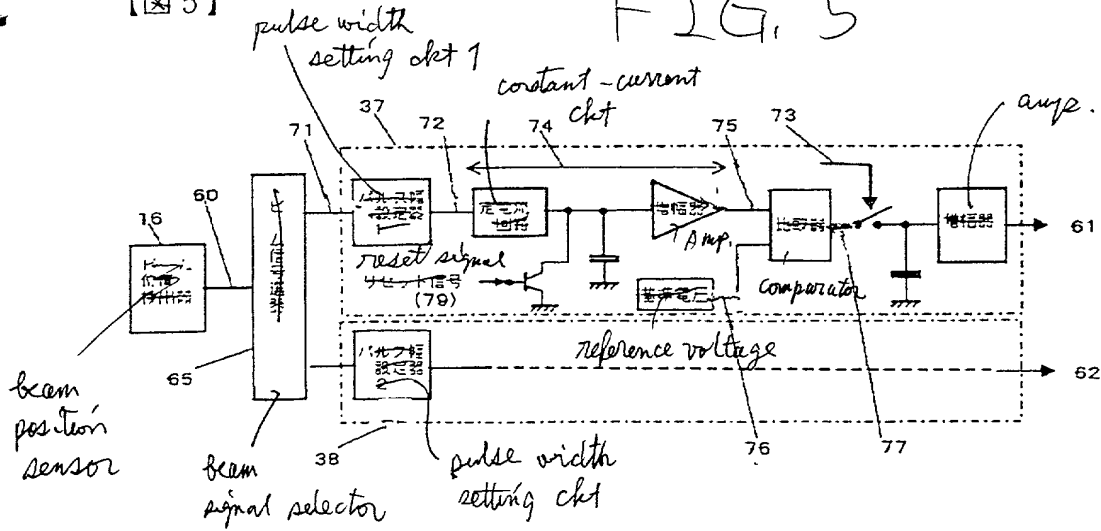 【図5】
FIG. 5
pulse width
setting ckt 1
constant-current
ckt
amp.
71
37
72
74
75
73
16
60
パルス幅
設定器
1
定電流
回路
増幅器
Amp.
比較器
増幅器
61
reset signal
リセット信号
(79)
基準電圧
comparator
ビーム信号選択
ビーム
位置
検出器
reference voltage
65
パルス幅
設定器
2
62
beam
position
sensor
38
76
77
beam
signal selector
pulse width
setting ckt